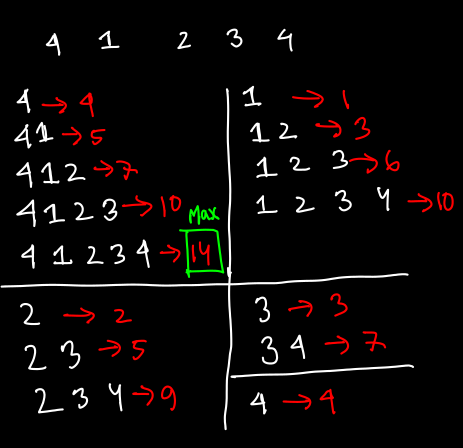 4 1 2 3 4
4 → 4
4 1 → 5
4 1 2 → 7
4 1 2 3 → 10
Max
4 1 2 3 4 → 14
1 → 1
1 2 → 3
1 2 3 → 6
1 2 3 4 → 10
2 → 2
2 3 → 5
2 3 4 → 9
3 → 3
3 4 → 7
4 → 4